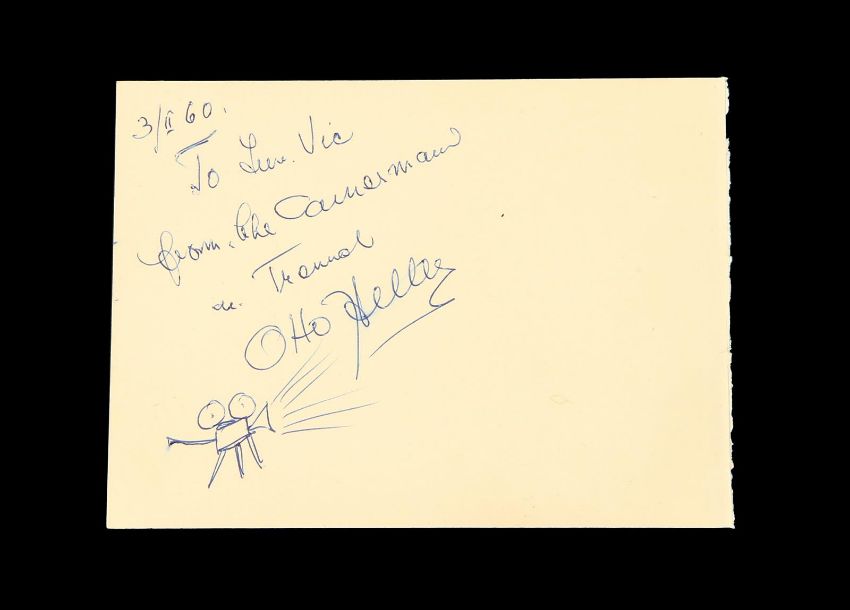 3/II 60.
To Luv. Vic
from the Camermann
Otto Heller